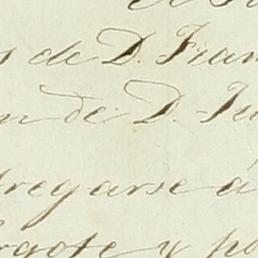 s de D. Fran
n de D. Ju
tregarse á
rgote y po